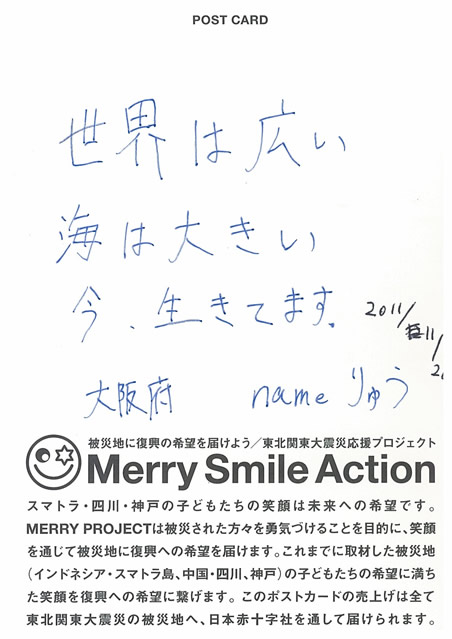 POST CARD
世界は広い
海は大きい
今、生きてます。
2011/
11/
2.
大阪府 name りゅう
被災地に復興の希望を届けよう／東北関東大震災応援プロジェクト
Merry Smile Action
スマトラ・四川・神戸の子どもたちの笑顔は未来への希望です。
MERRY PROJECTは被災された方々を勇気づけることを目的に、笑顔
を通じて被災地に復興への希望を届けます。これまでに取材した被災地
（インドネシア・スマトラ島、中国・四川、神戸）の子どもたちの希望に満ち
た笑顔を復興への希望に繋げます。このポストカードの売上げは全て
東北関東大震災の被災地へ、日本赤十字社を通して届けられます。